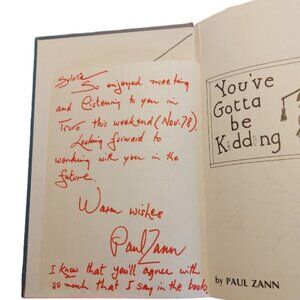 Sylvia
So enjoyed meeting
and listening to you in
Truro this weekend (Nov. 78).
Looking forward to
working with you in the
future.
Warm wishes
Paul Zann
I know that you'll agree with
so much that I say in the book
You've
Gotta
be
Kidding
by PAUL ZANN